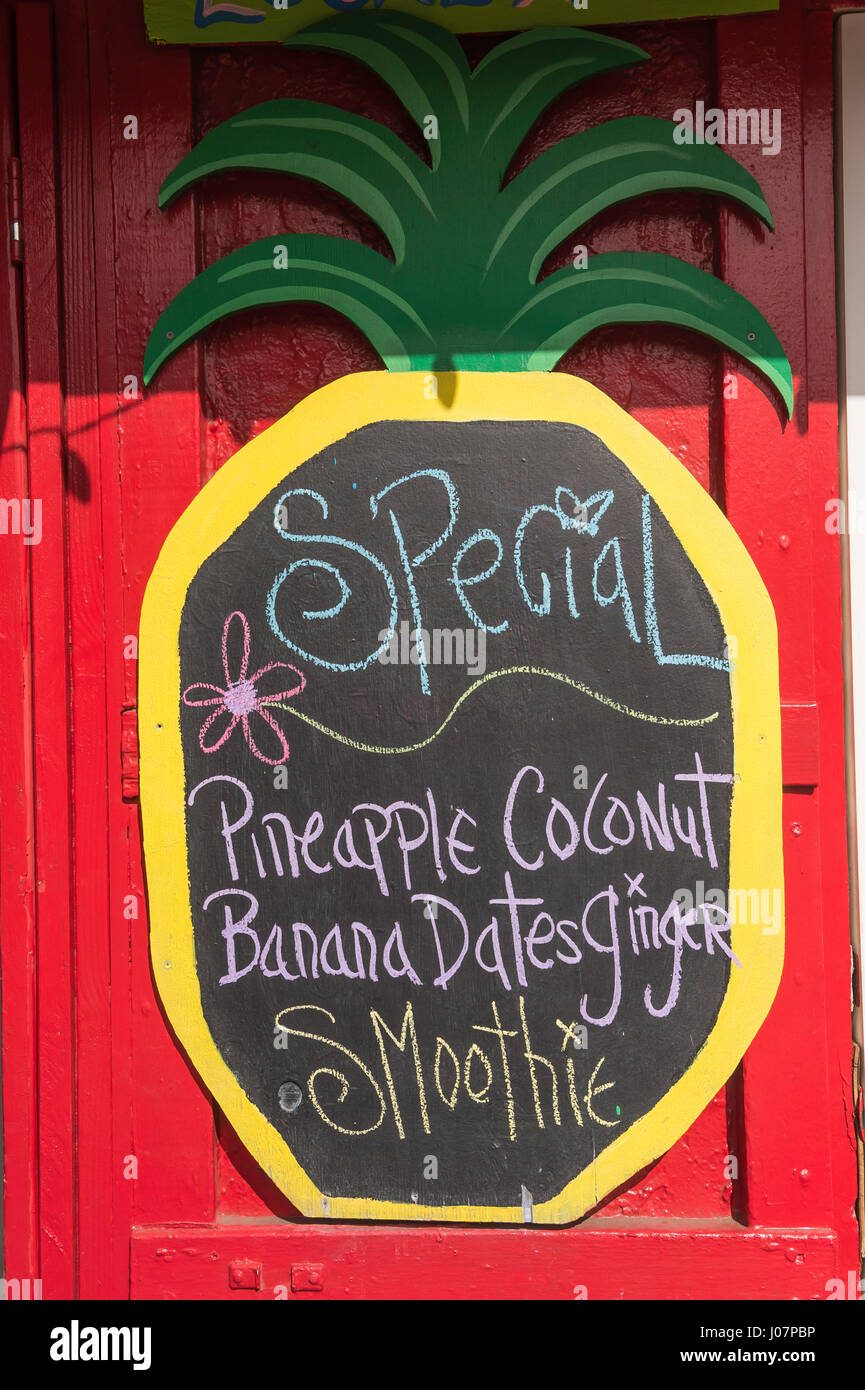 Special
Pineapple Coconut
Banana Dates ginger
Smoothie
a
alamy
a
a
a
alamy
Image ID: J07PBP
www.alamy.com